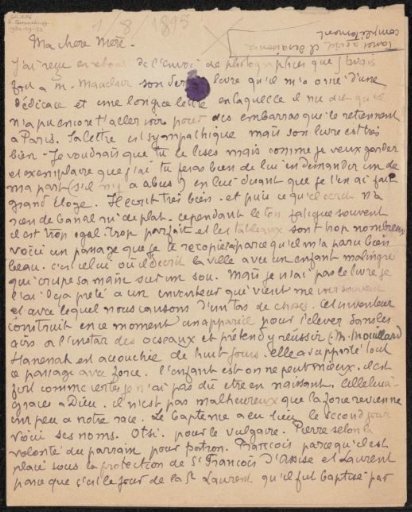 1/8/1895
Ma chere Mere.
J'ai reçu en retour de l'envoi de photographies que j'avais
fait a M. Mauclair son dernier livre qu'il m'a orné d'une
dédicace et une longue lettre en laquelle il me dit qu'il
n'a pu encore t'aller voir pour des embarras qui le retiennent
a Paris. Sa lettre est sympathique mais son livre est très
bien. Je voudrais que tu le lises mais comme je veux garder
cet exemplaire que j'ai tu feras bien de lui en demander un de
ma part (s'il n'y a abus) en lui disant que je t'en ai fait
grand éloge. Il écrit très bien. et puis ce qu'il écrit n'a
rien de banal ni de plat. cependant le ton fatigue souvent
il est trop égal trop parfait et les tableaux sont trop nombreux
voici un passage que je te recopie parce qu'il m'a paru bien
beau. c'est celui où il décrit la ville avec un enfant malingre
qui crispe sa main sur un sou. Mais je n'ai pas le livre je
l'ai déja prêté a un inventeur qui vient me voir souvent
et avec lequel nous causons d'un tas de choses. Cet inventeur
construit en ce moment un appareil pour s'élever dans les
airs a l'instar des oiseaux et prétend y réussir (M. Mouillard
Hanenah est accouchée de huit jours. elle a supporté tout
ce passage avec force. l'enfant est on ne peut mieux. il est
fort comme certes je n'ai pas dû etre en naissant. Celle lui
graces a Dieu. il n'est pas malheureux que la force revienne
un peu a notre race. Le bapteme a eu lieu le second jour
voici ses noms. Otsi. pour le vulgaire. Pierre selon la
volonté du parrain pour patron. François parce qu'il est
placé sous la protection de St François d'Assise et Laurent
parce que c'est le jour de la St Laurent qu'il fut baptisé par